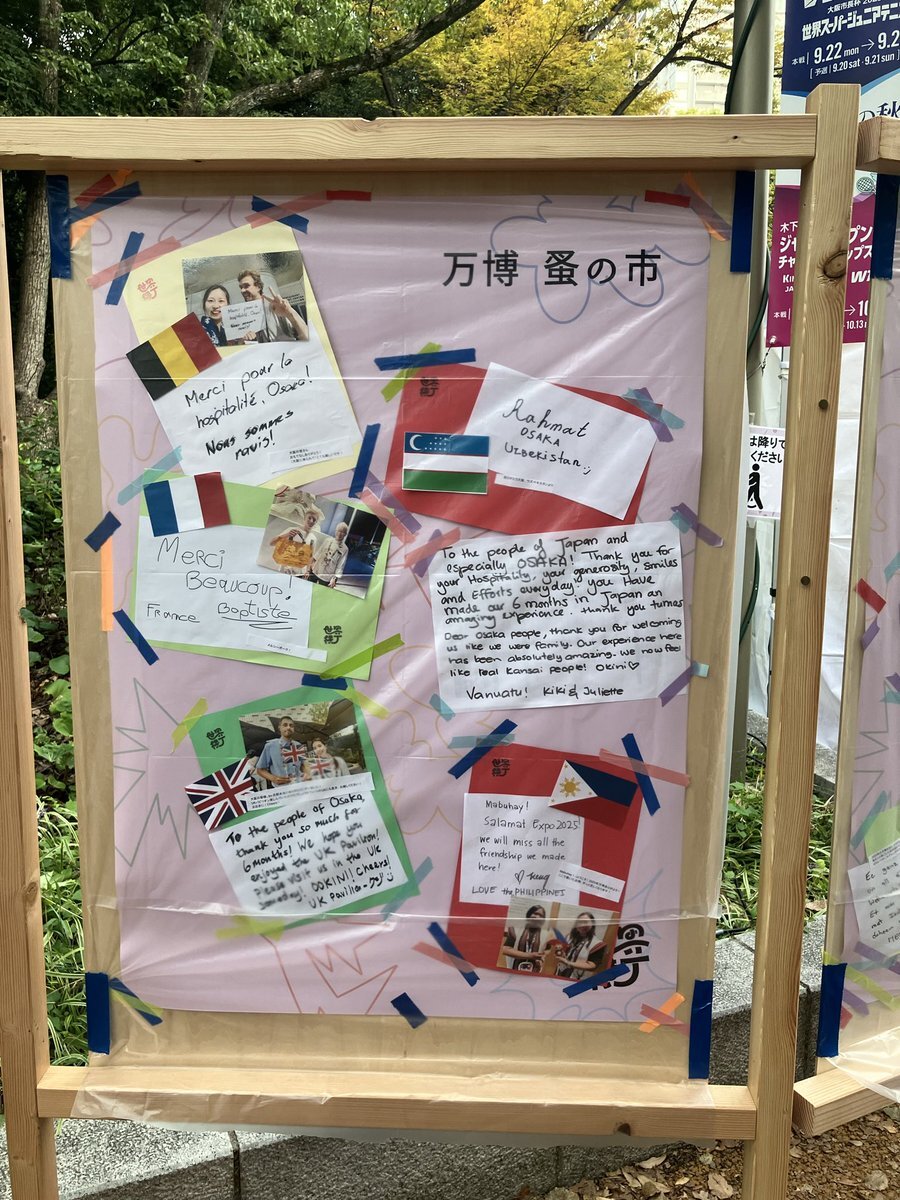 大阪市長杯
世界スーパージュニアテニ
本戦 9.22 mon → 9.2
[予選] 9.20 sat - 9.21 sun
万博 蚤の市
世界
横丁
Merci pour la
hospitalité, Osaka!
Nous sommes
ravis!
世界
横丁
Rahmat
OSAKA
Uzbekistan :)
Merci
Beaucoup!
France Baptiste
世界
横丁
To the people of Japan and
especially OSAKA! Thank you for
your Hospitality, your generosity, smiles
and Efforts everyday. you Have
made our 6 months in Japan an
amazing experience. Thank you tumas
Dear Osaka people, thank you for welcoming
us like we were family. Our experience here
has been absolutely amazing. We now feel
like real Kansai people! Okini♡
Vanuatu! Kiki & Juliette
世界
横丁
To the people of Osaka,
thank you so much for
6 months! We hope you
enjoyed the UK Pavilion!
Please visit us in the UK
someday! OOKINI! Cheers!
UK Pavilion
世界
横丁
Mabuhay!
Salamat Expo2025!
we will miss all the
friendship we made
here!
LOVE the PHILIPPINES
木下
ジャ
プン
チャ
ップス
本戦
10.13
は降りて
ください